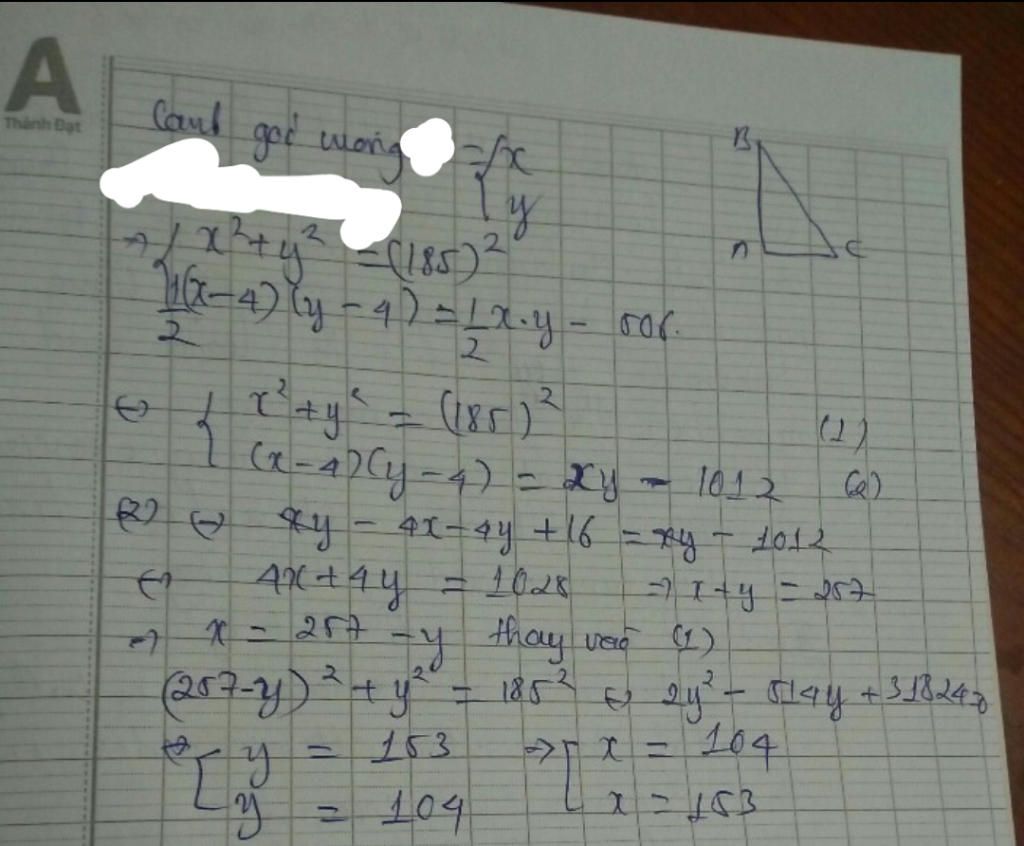 A
Thành Đạt
Cạnh góc vuông = { x
y
B
A C
=> { x² + y² = (185)²
1/2 (x - 4)(y - 4) = 1/2 x.y - 506.
<=> { x² + y² = (185)² (1)
(x - 4)(y - 4) = xy - 1012 (2)
(2) <=> xy - 4x - 4y + 16 = xy - 1012
<=> 4x + 4y = 1028 => x + y = 257
=> x = 257 - y thay vào (1)
(257-y)² + y² = 185² <=> 2y² - 514y + 31824=0
<=> [ y = 153 => [ x = 104
y = 104 x = 153